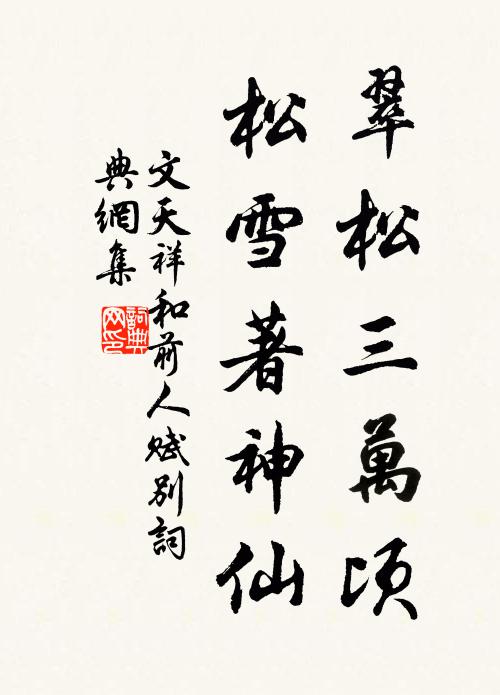 翠松三萬頃
松雪著神仙
文天祥和前人賦別詞
典網集
詞典
网印